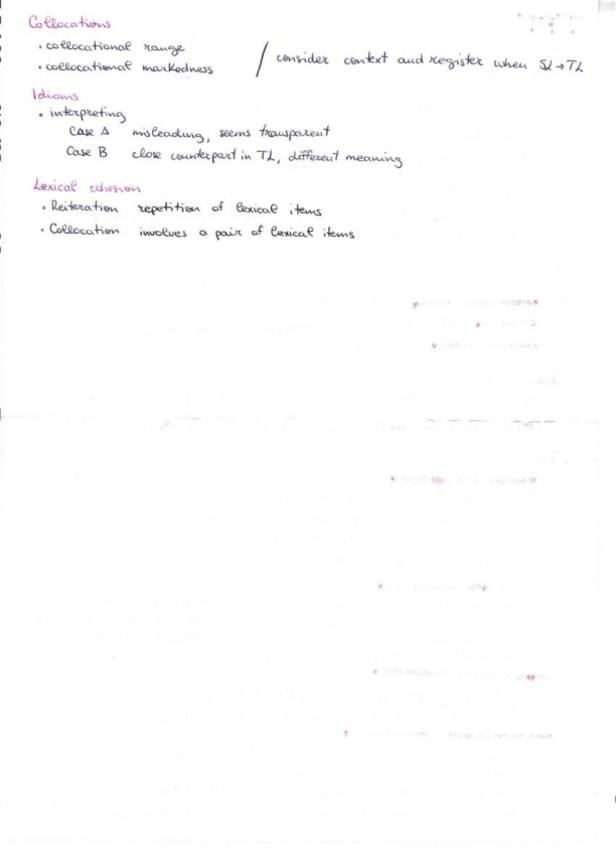 Collocations
• collocational range
• collocational markedness
/ consider context and register when SL→TL
Idioms
• interpreting
Case A misleading, seems transparent
Case B close counterpart in TL, different meaning
Lexical cohesion
• Reiteration repetition of lexical items
• Collocation involves a pair of lexical items